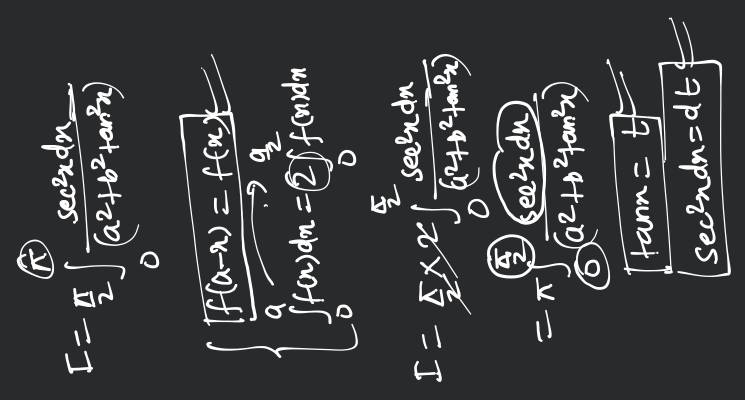 I = π/2 ∫₀^π sec²x dx / (a² + b² tan²x)
f(a-x) = f(x)
∫₀^a f(x)dx = 2∫₀^(a/2) f(x)dx
I = π/2 × 2 ∫₀^(π/2) sec²x dx / (a² + b² tan²x)
= π ∫₀^(π/2) sec²x dx / (a² + b² tan²x)
tanx = t
sec²x dx = dt